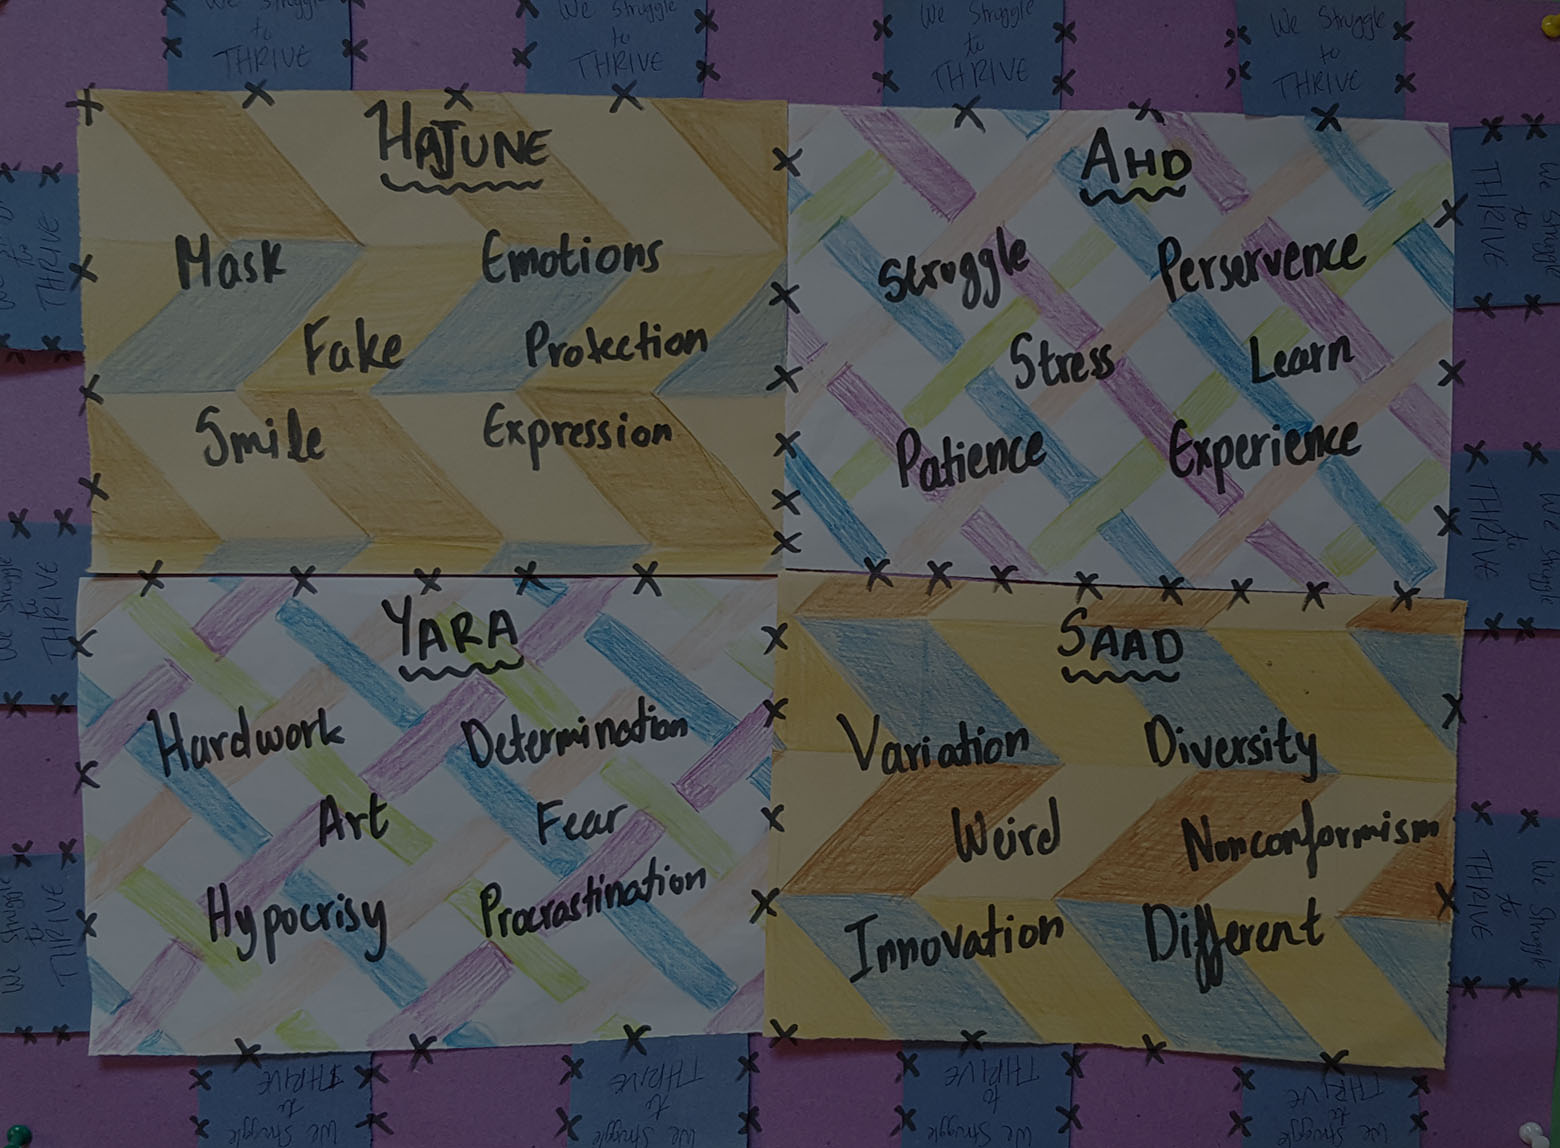 We Struggle
to
THRIVE
We Struggle
to
THRIVE
We Struggle
to
THRIVE
We Struggle
to
THRIVE
HAJUNE
Mask Emotions
Fake Protection
Smile Expression
AHD
Scruggle Perservence
Stress Learn
Patience Experience
YARA
Hardwork Determination
Art Fear
Hypocrisy Procrastination
SAAD
Variation Diversity
Weird Nonconformism
Innovation Different
to
THRIVE
We Struggle
to
THRIVE
We Struggle
to
THRIVE
We Struggle
to
THRIVE
We Struggle
to
THRIVE
We Struggle
to
THRIVE
We Struggle
to
THRIVE
We Struggle
to
THRIVE
We Struggle
to
THRIVE
We Struggle
to
THRIVE
We Struggle
to
THRIVE